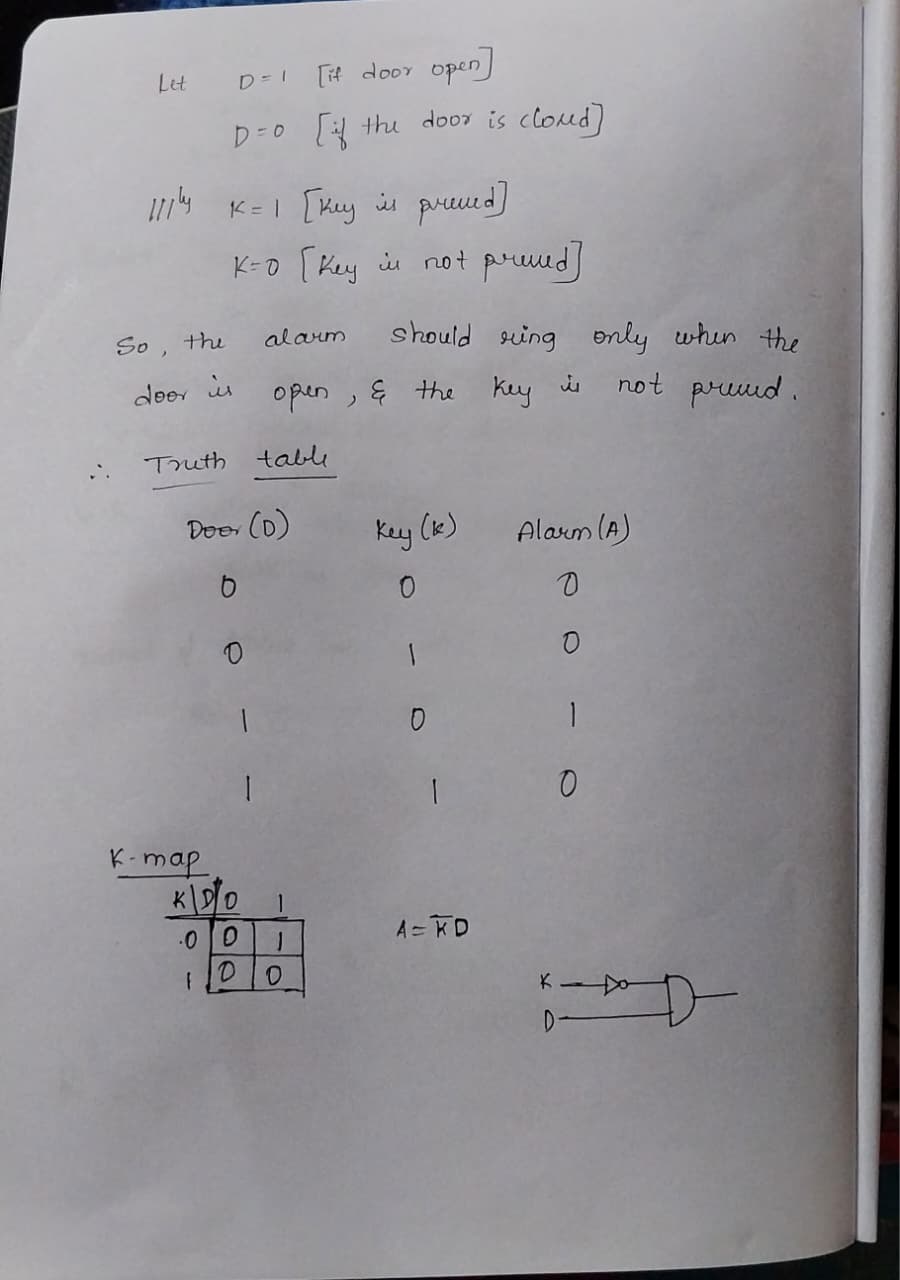 Let D = 1 [if door open]
D = 0 [if the door is closed]
|||ly K = 1 [Key is pressed]
K = 0 [Key is not pressed]
So, the alarm should ring only when the
door is open, & the key is not pressed.
∴ Truth table
Door (D) Key (K) Alarm (A)
0 0 0
0 1 0
1 0 1
1 1 0
K-map
K\D 0 1
0 0 1
1 0 0
A = K̅D
K
D